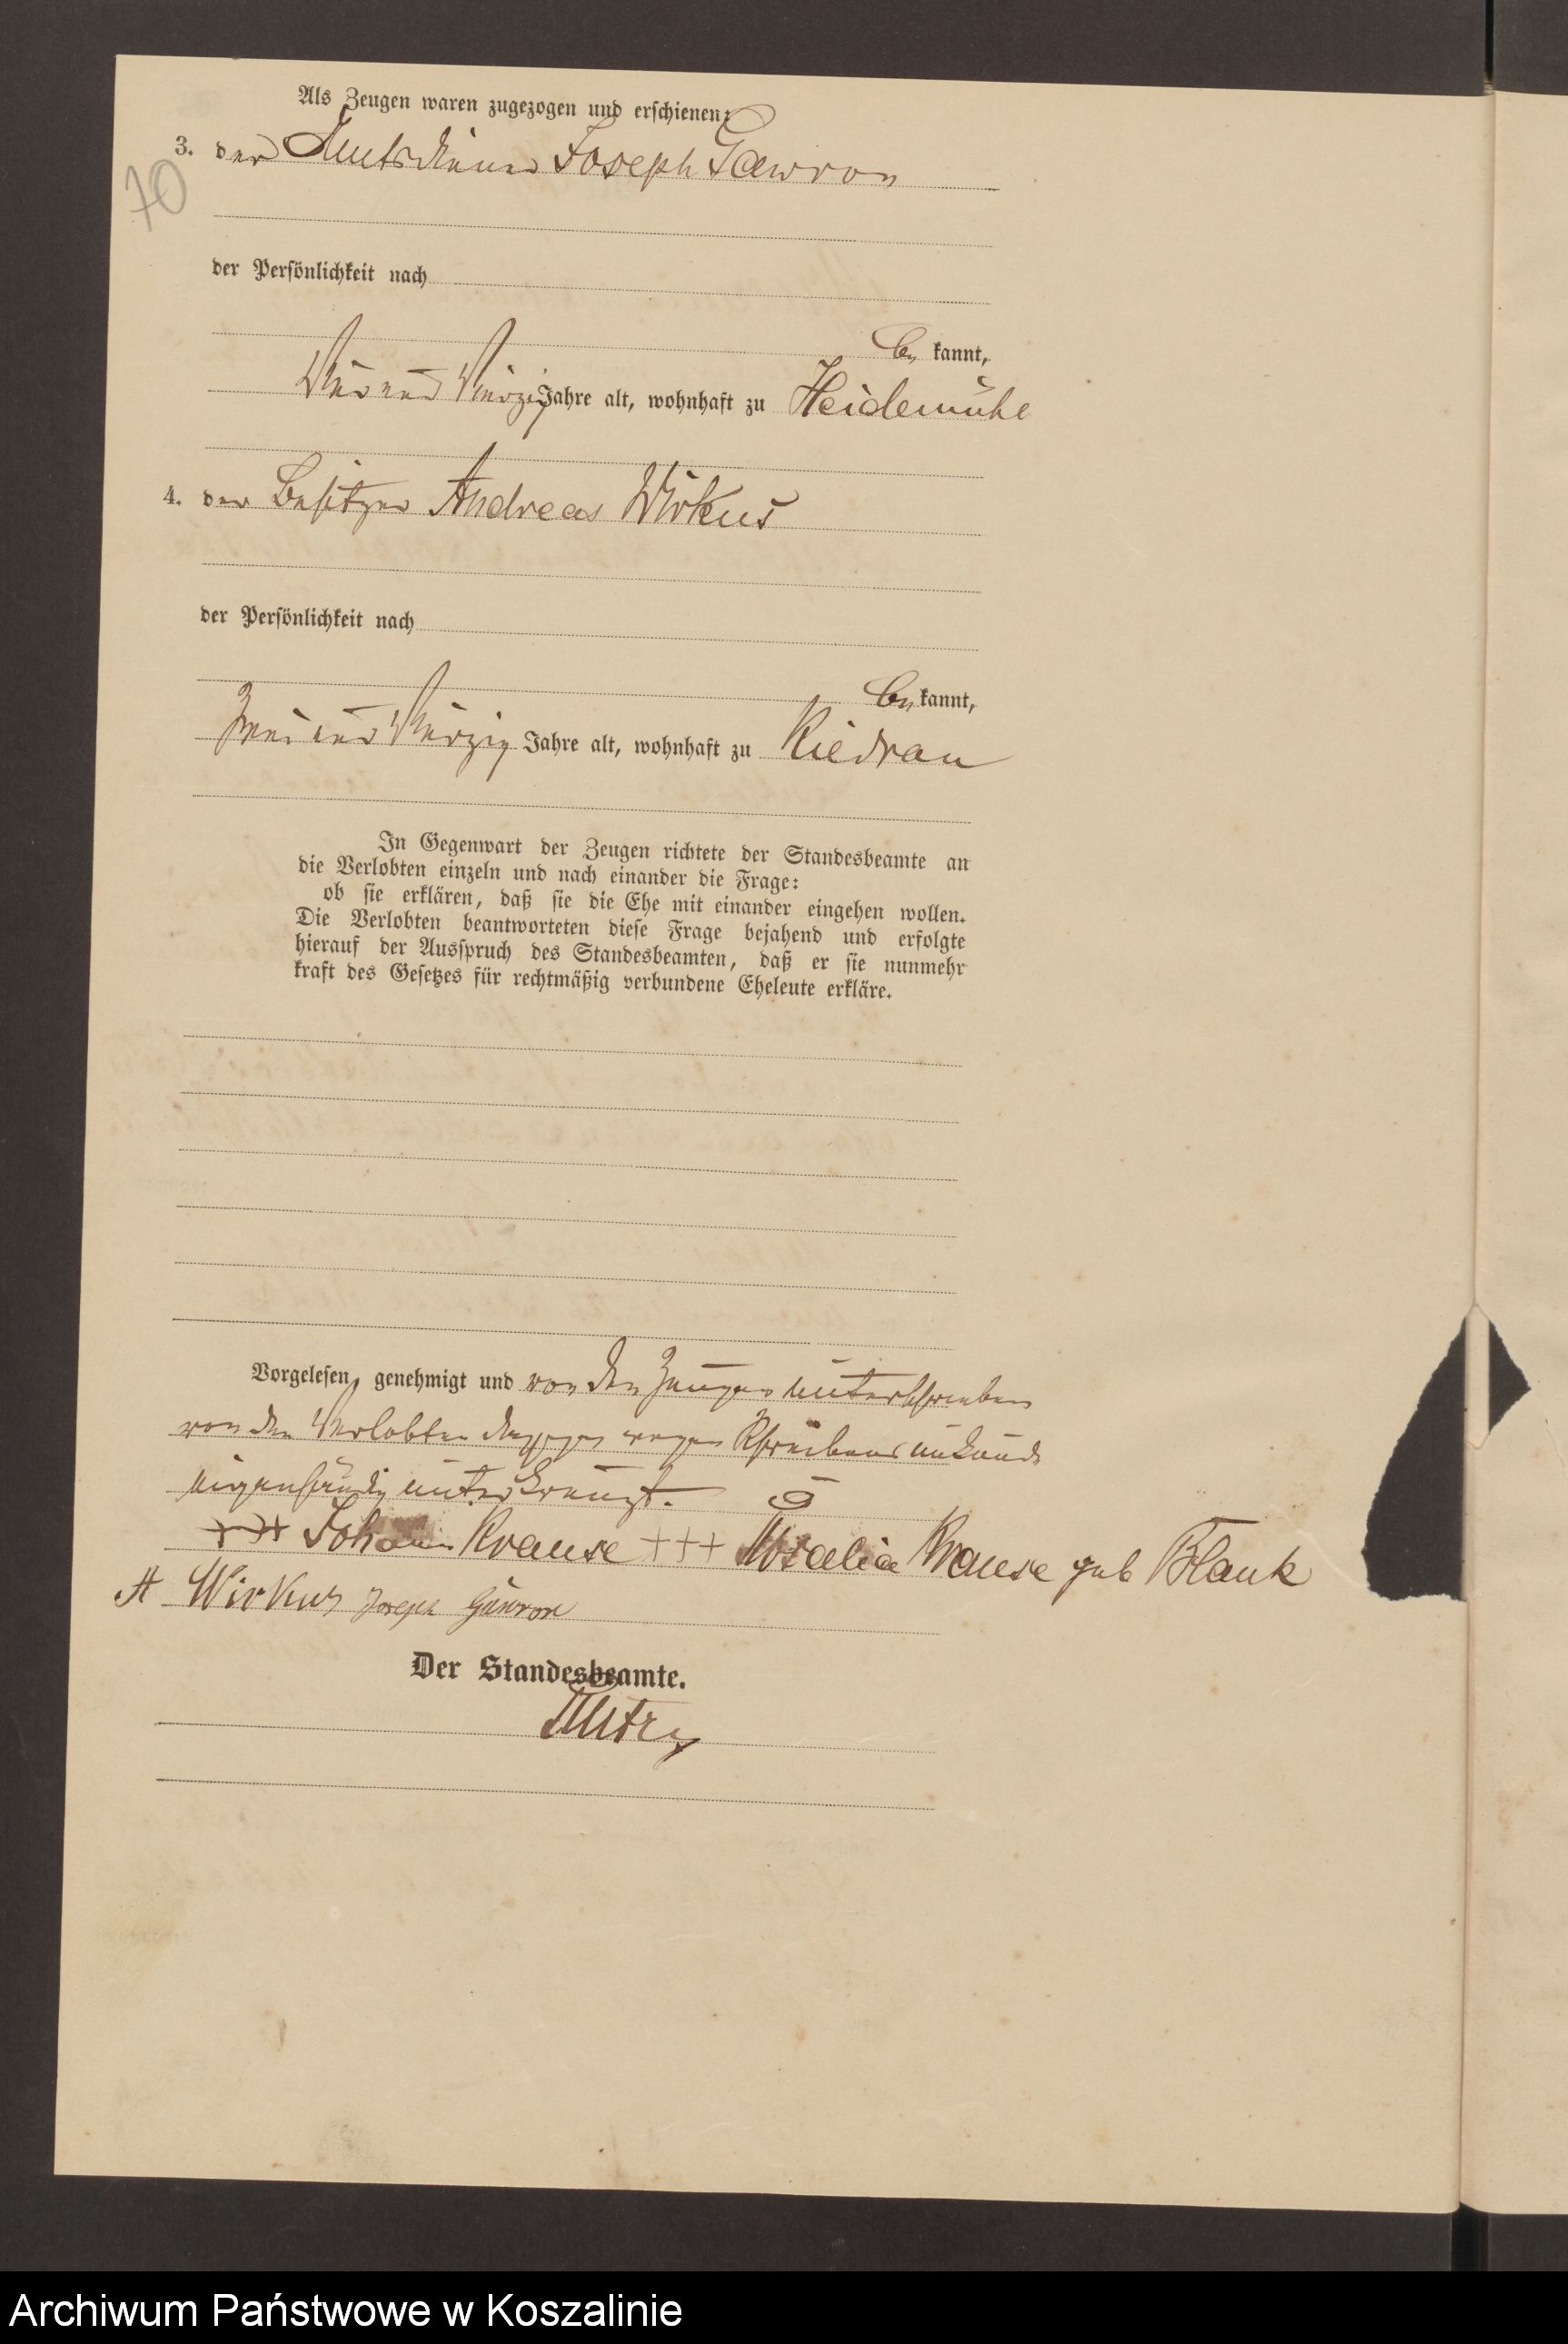 Als Zeugen waren zugezogen und erschienen:
3. der Amtsdiener Joseph Gawron
70
der Persönlichkeit nach
be kannt,
Vier und Vierzig Jahre alt, wohnhaft zu Heidemühl
4. der Besitzer Andreas Wirkus
der Persönlichkeit nach
be kannt,
Zwei und Vierzig Jahre alt, wohnhaft zu Kiedrau
In Gegenwart der Zeugen richtete der Standesbeamte an
die Verlobten einzeln und nach einander die Frage:
ob sie erklären, daß sie die Ehe mit einander eingehen wollen.
Die Verlobten beantworteten diese Frage bejahend und erfolgte
hierauf der Ausspruch des Standesbeamten, daß er sie nunmehr
kraft des Gesetzes für rechtmäßig verbundene Eheleute erkläre.
Vorgelesen, genehmigt und von den Zeugen unterschrieben
von den Verlobten dagegen wegen Schreibensunkunde
eigenhändig unterkreuzt.
+++ Johann Krause +++ Rosalia Krause geb Blank
A Wirkus Joseph Gawron
Der Standesbeamte.